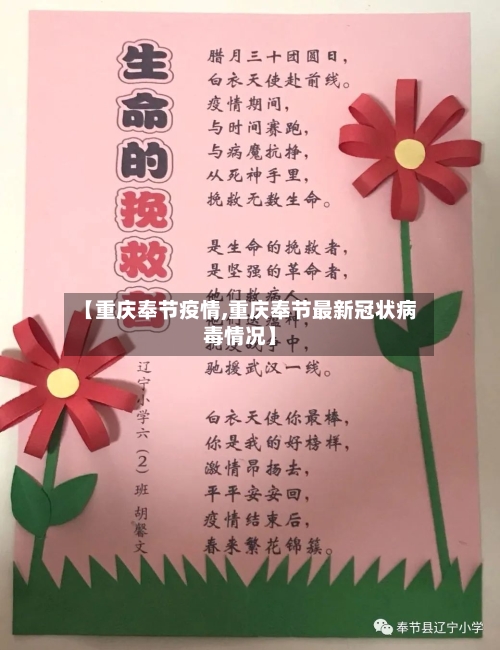 生命的挽救者
腊月三十团圆日，
白衣天使赴前线。
疫情期间，
与时间赛跑，
与病魔抗挣，
从死神手里，
挽救无数生命。
是生命的挽救者，
是坚强的革命者，
他们救病人
【重庆奉节疫情,重庆奉节最新冠状病
毒情况】
中，
驰援武汉一线。
白衣天使你最棒，
你是我的好榜样，
激情昂扬去，
平平安安回，
疫情结束后，
春来繁花锦簇。
辽宁小学六（2）班 胡馨文
奉节县辽宁小学